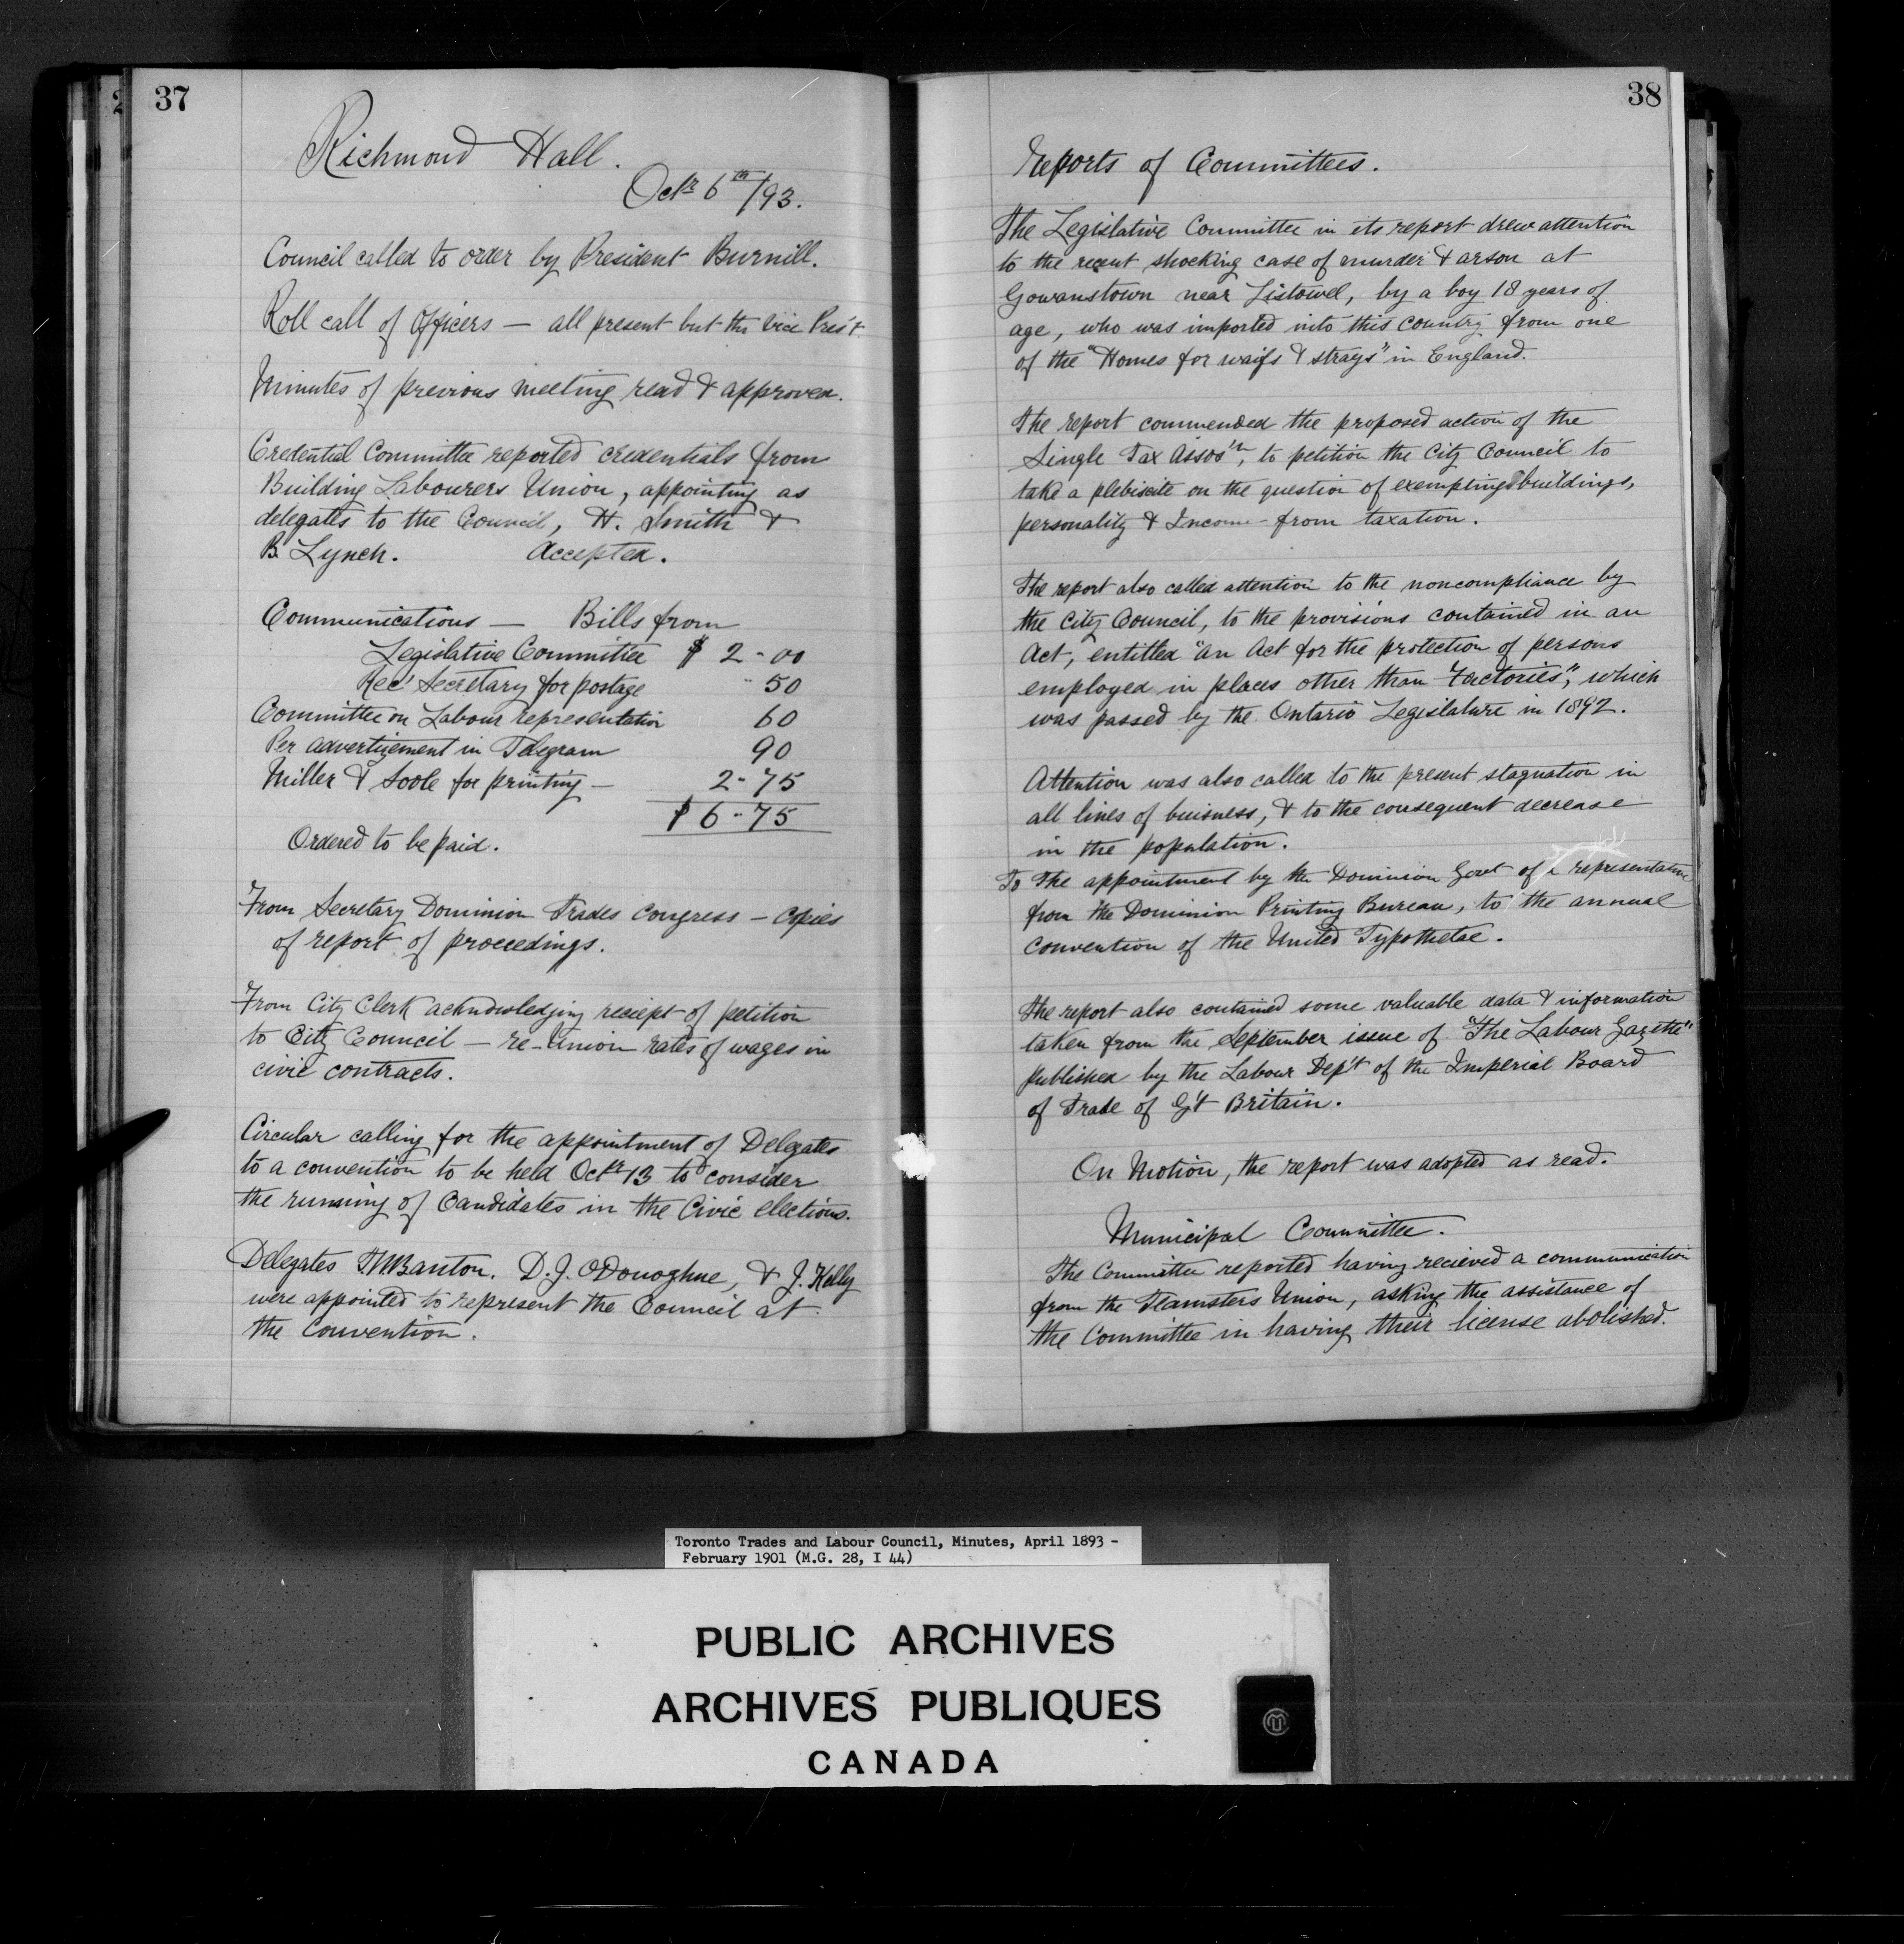 37
Richmond Hall.
Octr 6th/93.
Council called to order by President Burnill.
Roll call of Officers — all present but the Vice Pres't.
Minutes of previous meeting read & approved.
Credential Committee reported credentials from
Building Labourers Union, appointing as
delegates to the Council, H. Smith &
B. Lynch. Accepted.
Communications — Bills from
Legislative Committee $ 2-00
Rec' Secretary for postage 50
Committee on Labour representation 60
Per advertizement in Telegram 90
Miller & Soole for printing — 2-75
$ 6-75
Ordered to be paid.
From Secretary Dominion Trades Congress — copies
of report of proceedings.
From City Clerk acknowledging reciept of petition
to City Council — re-Union rates of wages in
civic contracts.
Circular calling for the appointment of Delegates
to a convention to be held Octr 13 to consider
the running of Candidates in the Civic elections.
Delegates T.W Banton, D.J. O'Donoghue, & J. Kelly
were appointed to represent the Council at
the Convention.
38
Reports of Committees.
The Legislative Committee in its report drew attention
to the recent shocking case of murder & arson at
Gowanstown near Listowel, by a boy 18 years of
age, who was imported into this country from one
of the "Homes for waifs & strays" in England.
The report commended the proposed action of the
Single Tax Assos'n, to petition the City Council to
take a plebiscite on the question of exempting buildings,
personality & Income - from taxation.
The report also called attention to the noncompliance by
the City Council, to the provisions contained in an
Act, entitled "An Act for the protection of persons
employed in places other than Factories", which
was passed by the Ontario Legislature in 1892.
Attention was also called to the present stagnation in
all lines of buisness, & to the consequent decrease
in the population.
To the appointment by the Dominion Govt of representative
from the Dominion Printing Bureau, to the annual
convention of the United Typothetae.
The report also contained some valuable data & information
taken from the September issue of "The Labour Gazette"
published by the Labour Dep't of the Imperial Board
of Trade of G't Britain.
On Motion, the report was adopted as read.
Municipal Committee.
The Committee reported having recieved a communication
from the Teamsters Union, asking the assistance of
the Committee in having their license abolished.
Toronto Trades and Labour Council, Minutes, April 1893 -
February 1901 (M.G. 28, I 44)
PUBLIC ARCHIVES
ARCHIVES PUBLIQUES
CANADA